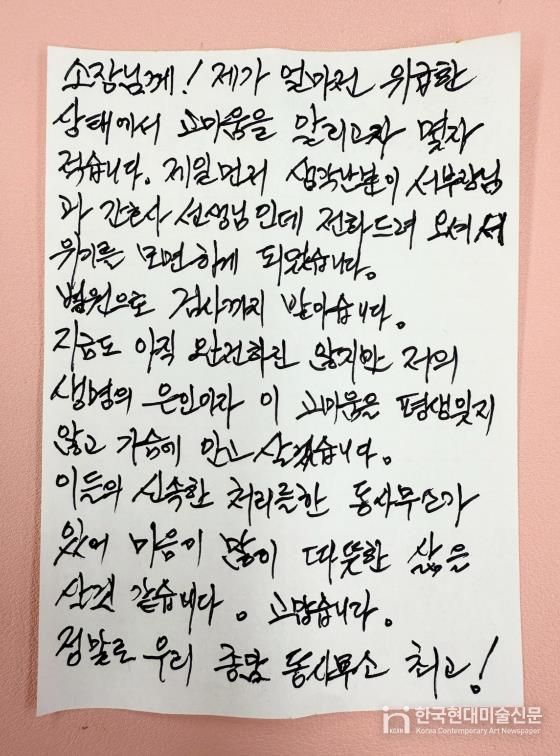 소장님께! 제가 얼마전 위급한
상태에서 고마움을 알리고자 몇자
적습니다. 제일먼저 생각난분이 서부장님
과 간호사 선생님인데 전화드려 오셔서
위기를 모면하게 되었습니다.
병원으로 검사까지 받아습니다.
지금도 아직 완전하린 않지만 저의
생명의 은인이라 이 고마움을 평생잊지
않고 가슴에 안고 살겠습니다.
이들의 신속한 처리를한 동사무소가
있어 마음이 많이 따뜻한 삶을
산것 같습니다. 고맙습니다.
정말로 우리 종암 동사무소 최고!
in KCAN 한국현대미술신문
Korea Contemporary Art Newspaper